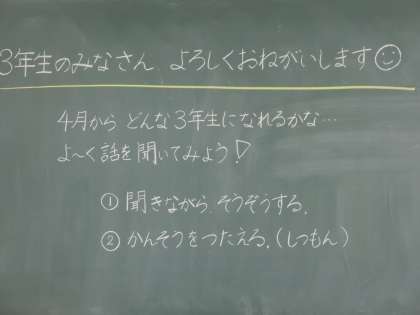 3年生のみなさん、よろしくおねがいします☺
4月から どんな3年生になれるかな…
よ〜く話を聞いてみよう!
① 聞きながら、そうぞうする。
② かんそうをつたえる。(しつもん)